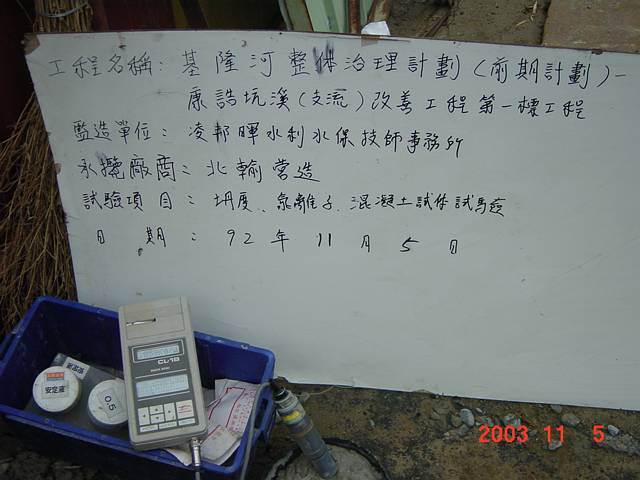 工程名稱：基隆河整体治理計劃（前期計劃）－
康誥坑溪（支流）改善工程第一標工程
監造單位：凌邦暉水利水保技師事務所
承攬廠商：北輸營造
試驗項目：坍度、氯離子、混凝土試体試驗
日期：92年11月5日
CL-1B
安定液
0.5
2003 11 5